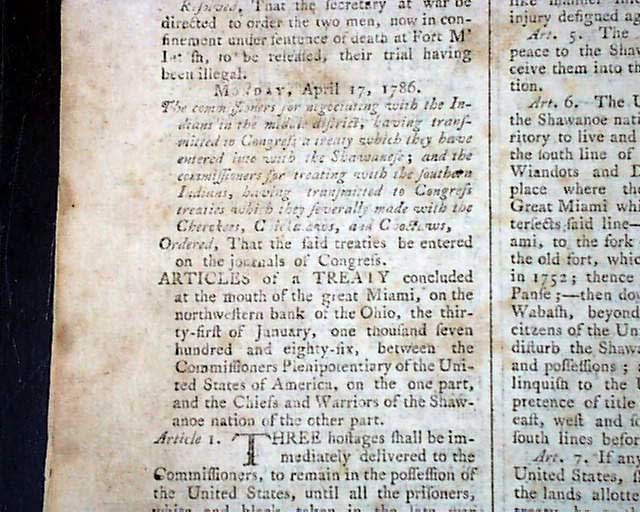 Resolved, That the secretary at war be
directed to order the two men, now in con-
finement under sentence of death at Fort Mc
to be released, their trial having
been illegal.
Monday, April 17, 1786.
The commissioners for negociating with the In-
dians in the middle district, having trans-
mitted to Congress a treaty which they have
entered into with the Shawanese; and the
commissioners for treating with the southern
Indians, having transmitted to Congress
treaties which they severally made with the
Cherokees, Chickasaws, and Choctaws,
Ordered, That the said treaties be entered
on the journals of Congress.
ARTICLES of a TREATY concluded
at the mouth of the great Miami, on the
northwestern bank of the Ohio, the thir-
ty-first of January, one thousand seven
hundred and eighty-six, between the
Commissioners Plenipotentiary of the Uni-
ted States of America, on the one part,
and the Chiefs and Warriors of the Shaw-
anoe nation of the other part.
Article 1. THREE hostages shall be im-
mediately delivered to the
Commissioners, to remain in the possession of
the United States, until all the prisoners,
white and black, taken in the late war
like manner
injury designed ag
Art. 5. The
peace to the Shaw
ceive them into th
tion.
Art. 6. The U
the Shawanoe nati
ritory to live and
the south line of
Wiandots and D
place where th
Great Miami whi
tersects said line—
ami, to the fork
the old fort, whic
in 1752; thence
Panse;—then do
Wabash, beyond
citzens of the Un
disturb the Shaw
and possessions; a
linquish to the U
pretence of title
east, west and so
south lines befor
Art. 7. If any
United States, s
the lands allotte